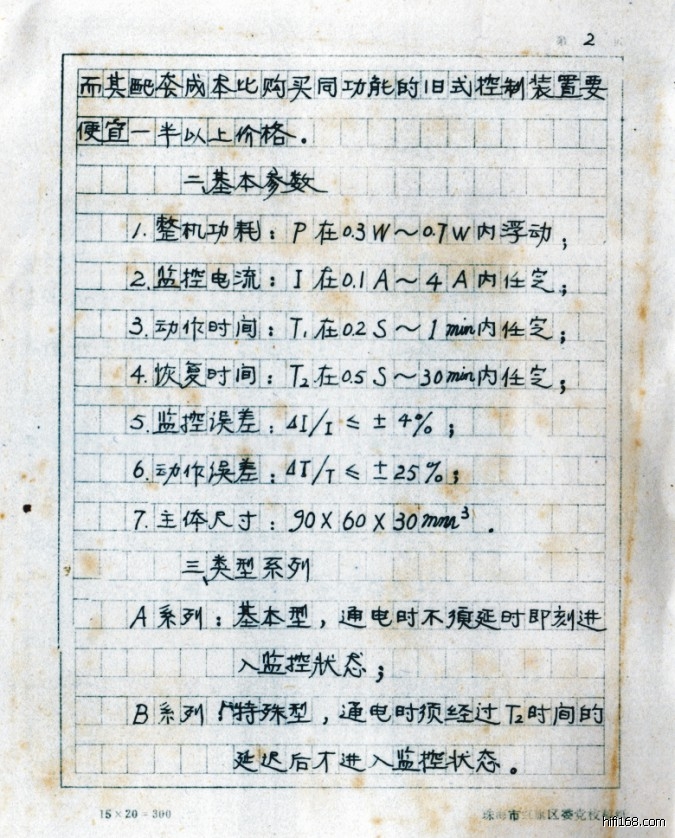 第 2 页
而其配套成本比购买同功能的旧式控制装置要
便宜一半以上价格。
二、基本参数
1. 整机功耗：P 在 0.3 W～0.7 W 内浮动；
2. 监控电流：I 在 0.1 A～4 A 内任定；
3. 动作时间：T₁ 在 0.2 S～1 min 内任定；
4. 恢复时间：T₂ 在 0.5 S～30 min 内任定；
5. 监控误差：ΔI/I ≤ ±4%；
6. 动作误差：ΔT/T ≤ ±25%；
7. 主体尺寸：90×60×30 mm³.
三、类型系列
A 系列：基本型，通电时不须延时即刻进
入监控状态；
B 系列：特殊型，通电时须经过 T₂ 时间的
延迟后才进入监控状态。
15×20=300
hifi168.com